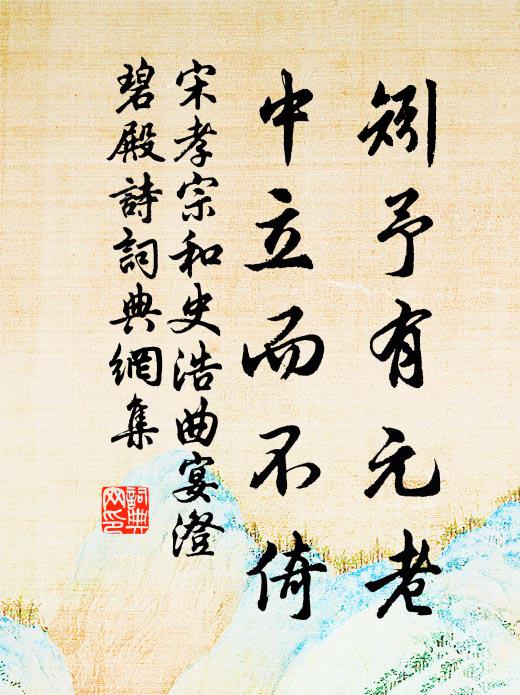 矧予有元老
中立而不倚
宋孝宗和史浩曲宴澄
碧殿詩詞典網集
詞典
网印